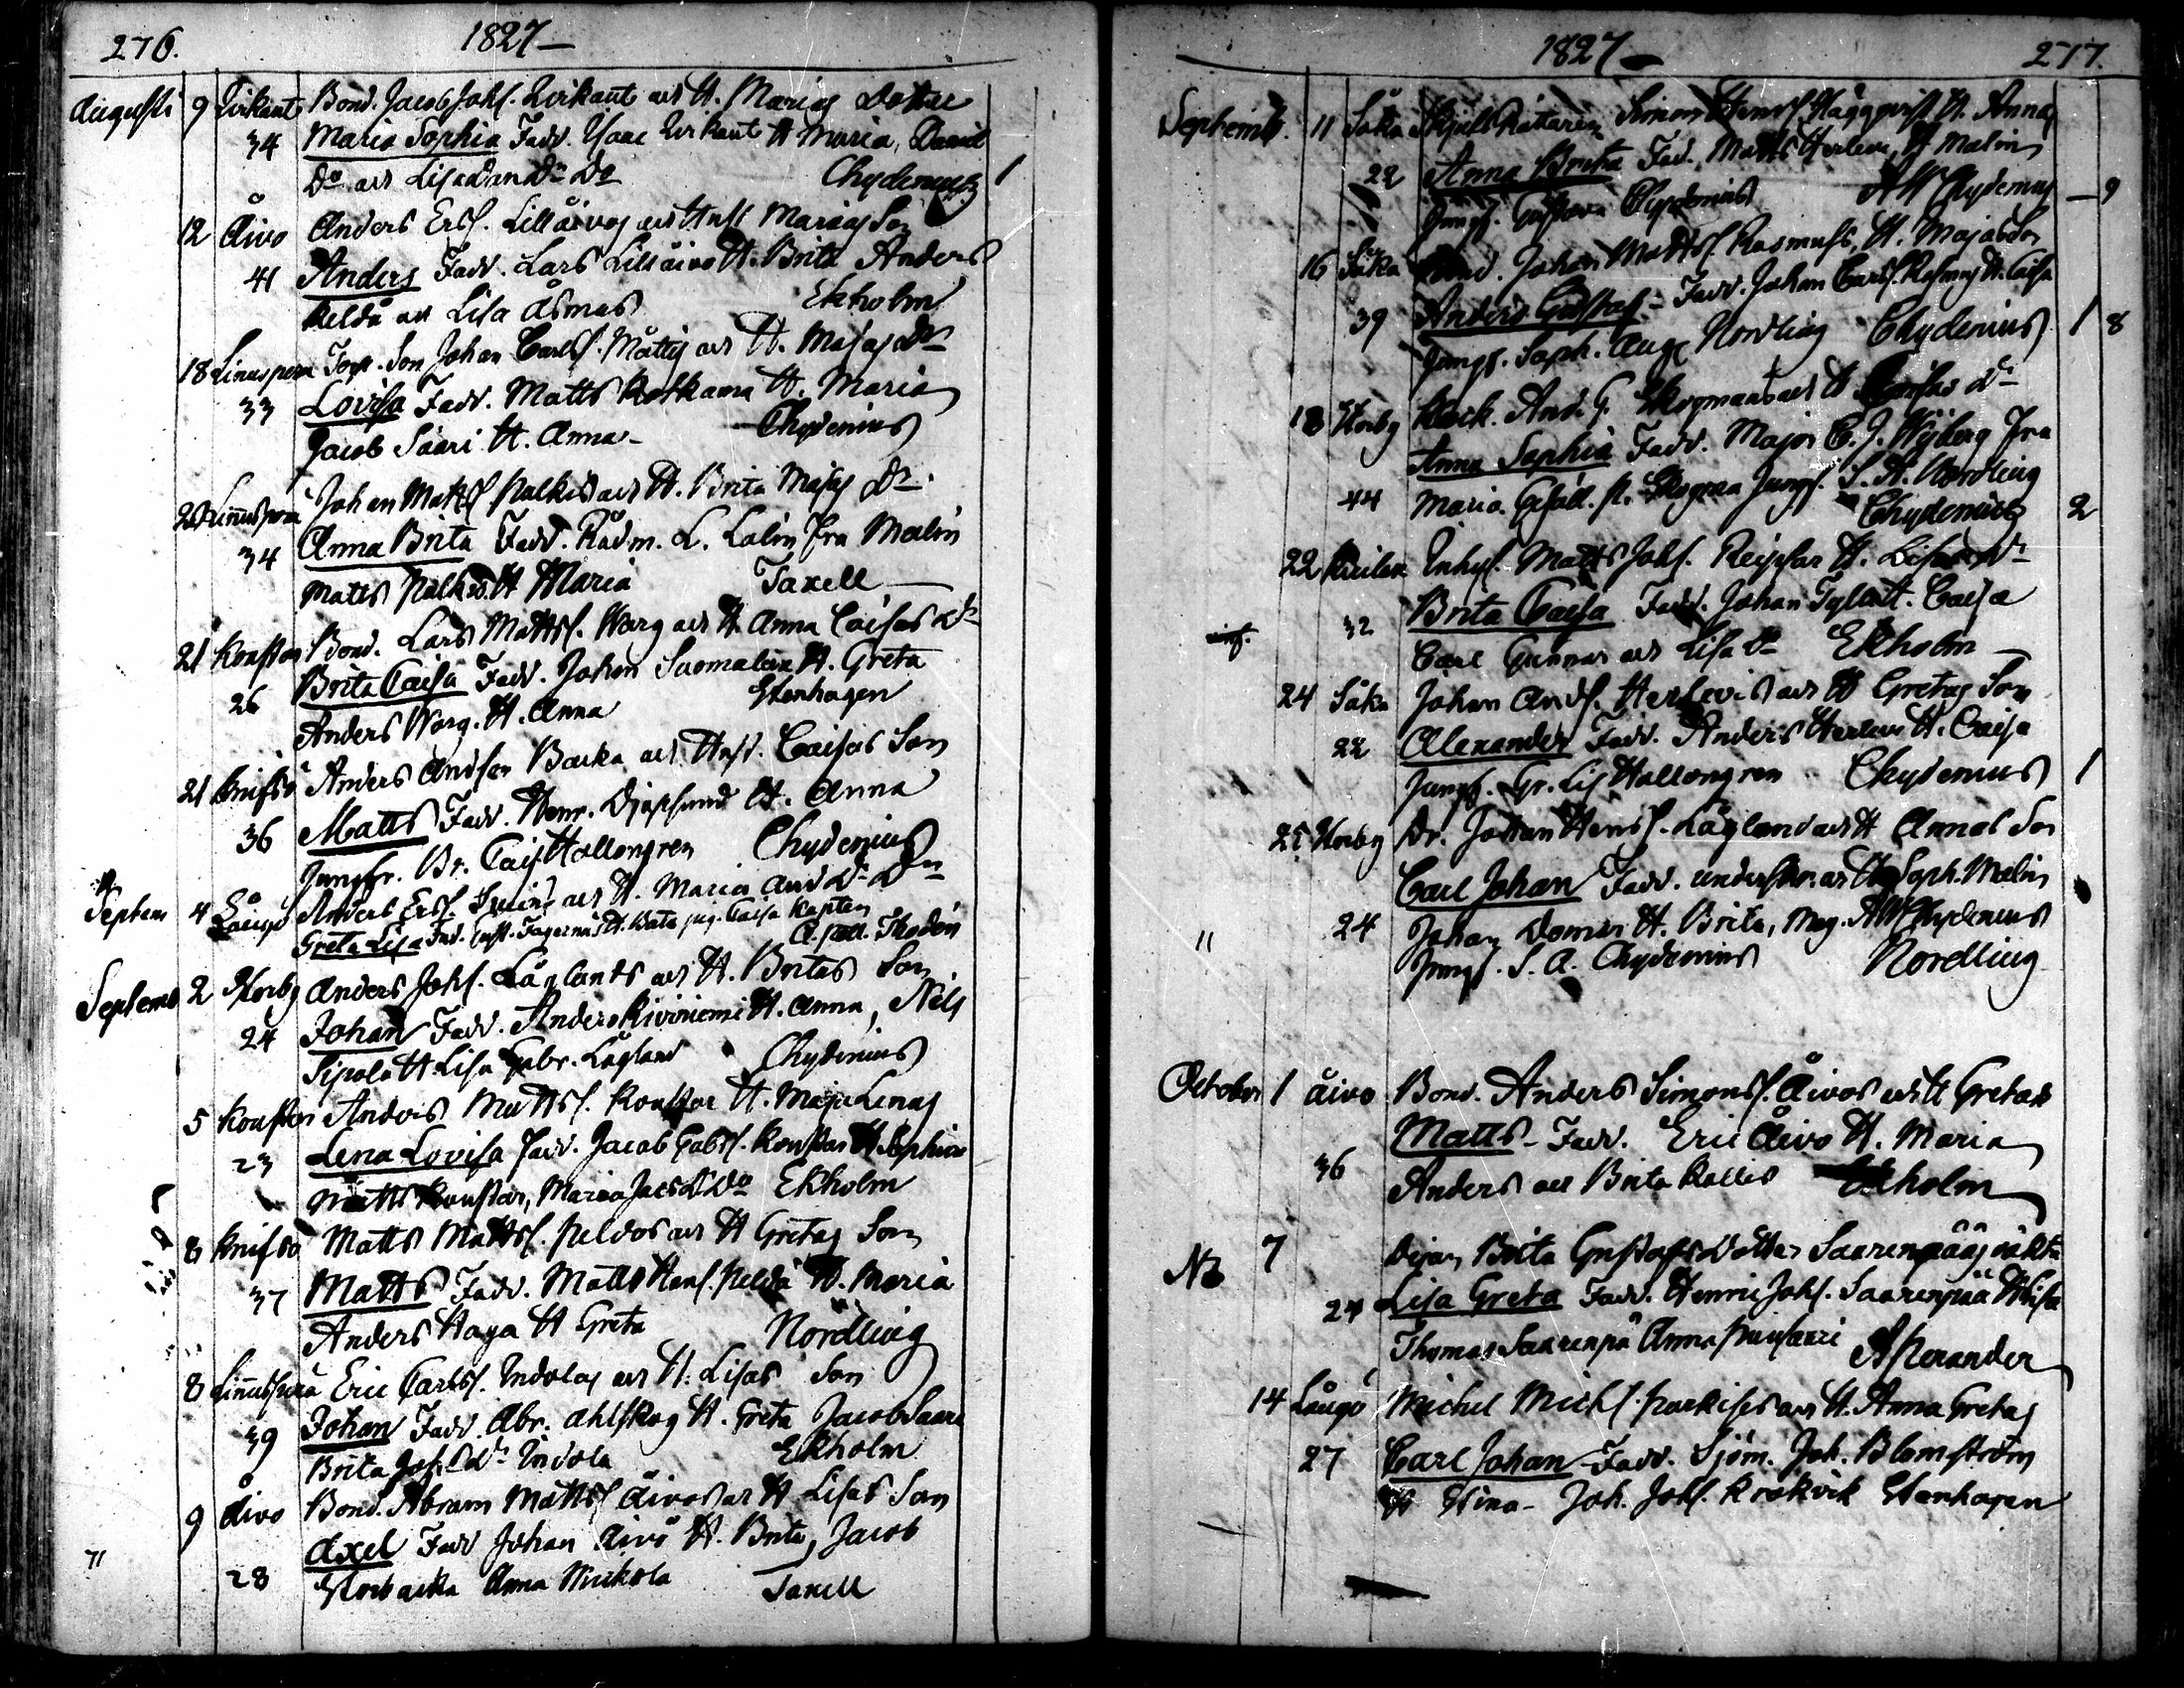 276. 1827
Augusti 9 Zirkant Bond. Jacob Johs. Zirkant och H. Marias Dotter
34 Maria Sophia Fadd. Isaac Zirkant H Maria, Daniel
Do och Lisa Chydenius 1
12 Åivo Anders Ers. Lillåivos och Hust Marias Son
41 Anders Fadd. Lars Lillåivo H. Brita Anders
Peldå och Lisa Åsmas Ekholm
18 Linuspera Son Johan Carls. Mattis och H. Majas Dr
33 Lovisa Fadd. Matts Kotkama H. Maria
Jacob Saari H. Anna Chydenius
20 Linnuspera Johan Matts Palkis och H. Brita Majas Dr
34 Anna Brita Fadd. Rådm. L. Calin Fru Malin
Matts Palkis H Maria Taxell
21 Konstar Bond. Lars Matts. Warg och H. Anna Caisas Dr
26 Brita Caisa Fadd. Johan Suomalain H. Greta
Anders Warg. H. Anna Stenhagen
21 Knifsö Anders Anders Backa och Hust. Caisas Son
36 Matts Fadd. Henr. Djupsund H. Anna
Jungfr. Br. Cais Hallongren Chydenius
Septem 4 Långö Anders Ers. och H. Maria And Dr Dr
Greta Lisa Fad. Gust. Fagernäs H. Brita pig. Caisa Kapten
A. Thodén
Septemb 2 Storby Anders Johs. Låglands och H. Britas Son
24 Johan Fadd. Anders Kiviniemi H. Anna, Nils
Sipola H Lisa Gabr. Lågland Chydenius
5 Konstar Anders Matts. Konstar H. Maja Lenas
23 Lena Lovisa Fad. Jacob Gabrs. Konstar H Sophia
Matts Konstar, Maria Jacs Dr Do Ekholm
8 Knifsö Matts Matts. Peldos och H Gretas Son
37 Matts Fadd. Matts Hens. Peldå H. Maria
Anders Haga H Greta Nordling
8 Linnuspera Eric Carls. Indolas och H. Lisas Son
39 Johan Fadd. Abr. Ahlskog H. Greta Jacob Saari
Brita Johs Dr Indola Ekholm
9 Åivo Bond. Abram Matts Åivos och H Lisas Son
11 Axel Fad Johan Åivo H. Brita, Jacob
28 Storbacka Anna Niukola Taxell
1827 277.
Septemb. 11 Såka Simon Henrs. Häggqvist H. Annas
22 Anna Brita Fad. Matts Herlevi, H Malin
Jungf. Gustava Chydenius Chydenius 9
16 Såka Bond. Johan Matts Rasmus, H. Majas Son
39 Anders Gustaf Fadd. Johan Carls. Rasmus H. Caisa
Jungf. Soph. Aug. Nordling Chydenius 1 8
18 Storby Klock. And. G. Skogmans och H Caisas Dr
Anna Sophia Fadd. Major C. J. Wiberg Fru
44 Maria Skogman Jungf. S. A. Nordling
Chydenius 2
22 Inhys. Matts Johs. Reipsar H. Lisas Dr
32 Brita Caisa Fadd. Johan H. Caisa
Carl Gunnar och Lisa Dr Ekholm
24 Såka Johan Ands. Herlevis och H Gretas Son
22 Alexander Fadd. Anders Herlevi H. Caisa
Jungf. Gr. Lis Hallongren Chydenius 1
25 Storby Dr. Johan Hens. Lågland och H Annas Son
Carl Johan Fadd. och H Soph. Malin
11 24 Johan H. Brita, Mag. Chydenius
Jungf. S. A. Chydenius Nordling
October 1 Åivo Bond. Anders Simons. Åivos och H Gretas
36 Matts Fadd. Eric Åivo H. Maria
Anders och Brita Kallis Ekholm
Nb 7 Pigan Brita Gustafs Dotter Saarenpääs oäkta
24 Lisa Greta Fadd. Henric Johs. Saarenpää H Lisa
Thomas Saarenpä Anna Perander
14 Långö Michel Michs. och H. Anna Gretas
27 Carl Johan Fadd. Sjöm. Joh. Blomström
H Stina Joh. Johs. Krokvik Stenhagen